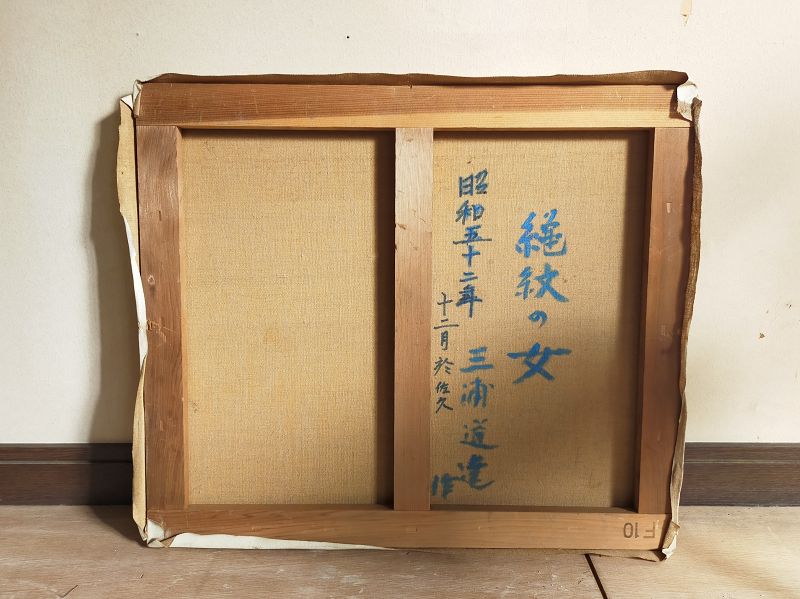 縄紋の女
昭和五十二年
十二月於佐久
三浦道達
作
F10